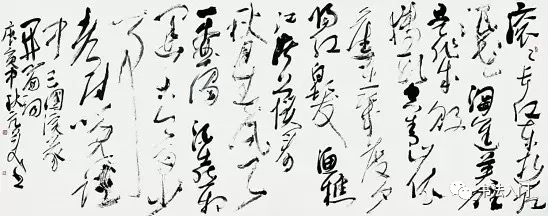 滚滚长江东逝水
浪花淘尽英雄
是非成败
转头空青山依
旧在几度夕
阳红白发渔樵
江渚上惯看
秋月春风
一壶浊酒喜相
逢古今多少
事
都付笑谈
中 三国演义
开篇词
庚寅中秋
书法入门